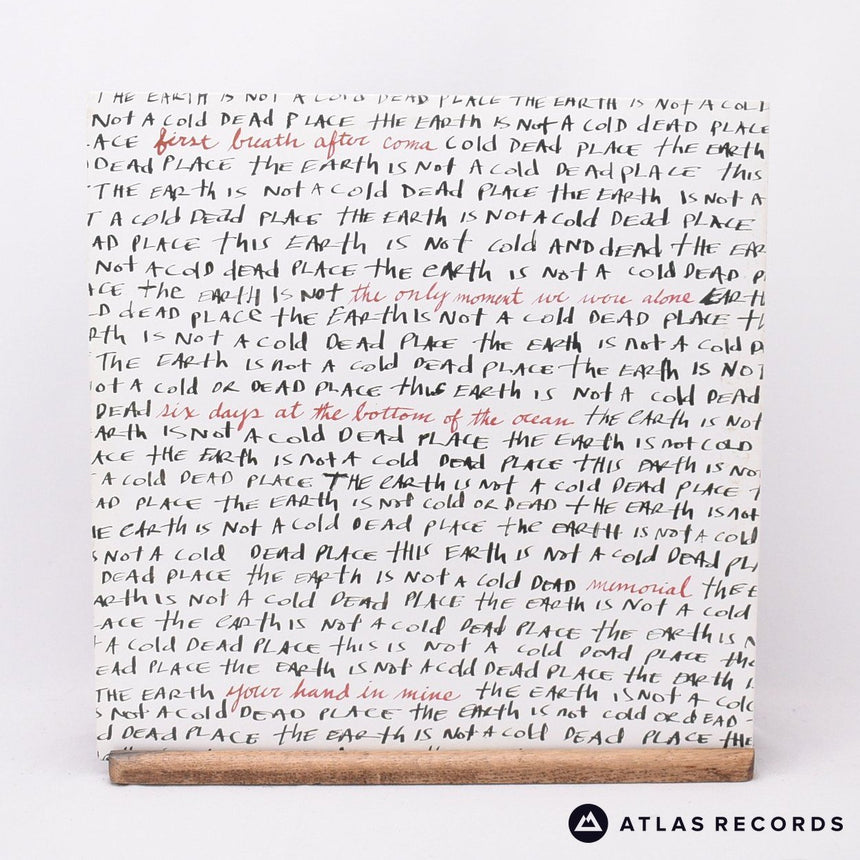 THE EARTH IS NOT A COLD DEAD PLACE THE EARTH IS NOT A COLD
NOT A COLD DEAD PLACE tHE EARTH IS NOt A COlD dEAD PLACE
ACE first breath after coma COLD DEAD PLACE the EARTH
DEAD PLACE the EARTH IS NOT A COLD DEAD PLACE this
THE EARTH IS NOT A COld DEAD PLACE the EARTH IS NOt A
T A COld DEAD PLACE tHE EARth IS NOt A COld DEAD PLACE
AD PLACE this EARth IS NOt cold AND dead tHE EAR
NOt A COlD dEAD PLACE tHE eARth IS NOt A cold DEAD P
ACE tHE EARtH IS NOT the only moment we were alone EARTH
D dEAD PLACE the EARtH IS NOT A COld DEAD PLACE tH
RtH IS NOt A COld DEAD PLACE the EARth IS NOt A COld D
THE EARTH IS not A cold DEAD PLACE the EARth IS NOT
Ot A cold OR DEAD PLACE this EARth IS NOt A cold DEAD
DEAD six days at the bottom of the ocean tHE EARth IS NOt
ARth IS NOt A COld DEAD PLACE tHE EARth IS not COLD
ACE tHE EARth IS not A cold DEAD PLACE tHIS EARth IS NOt
A cold DEAD PLACE THE EARth IS not A cold DEAD PLACE
AD PLACE tHE EARth IS not cold OR DEAD tHE EARth IS not
E EARth IS NOt A COld DEAD PLACE tHe EARtH IS not A cold
S NOt A cold DEAD PLACE tHIS EARth IS NOt A COld DEAD PL
DEAd PLACE the EARth IS NOt A COld DEAD memorial tHE E
ARth IS NOt A cold DEAD PLACE tHE EARth IS NOt A cold
ACE tHE EARth IS NOt A COld DEAD PLACE tHE EARth IS N
t A cold DEAD PLACE tHIS IS NOt A COld DEAD PLACE tHE
EAD PLACE tHE EARth IS NOt A COld DEAD PLACE tHE EARth IS
THE EARTH your hand in mine tHE EARth IS NOt A COLD
S NOt A COld DEAD PLACE tHE EARth IS not cold OR dEAD
d DEAD PLACE tHE EARth IS NOt A COld DEAD PLACE tHE
ATLAS RECORDS